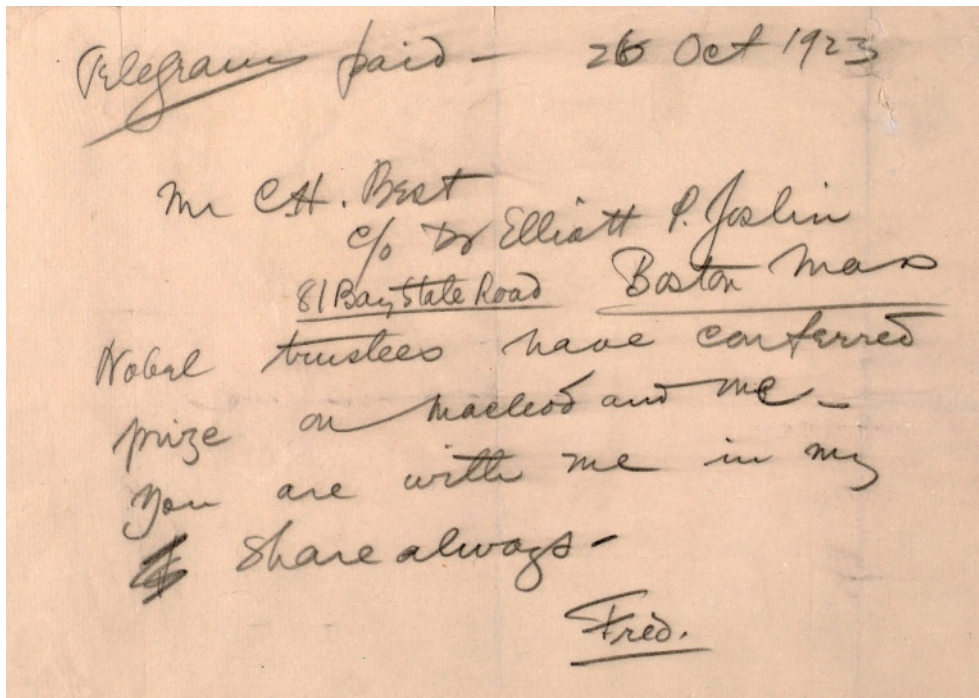 Telegram paid - 26 Oct 1923
Mr C.H. Best
c/o Dr Elliott P. Joslin
81 Bay State Road Boston Mass
Nobel trustees have conferred
prize on Macleod and me -
You are with me in my
share always -
Fred.